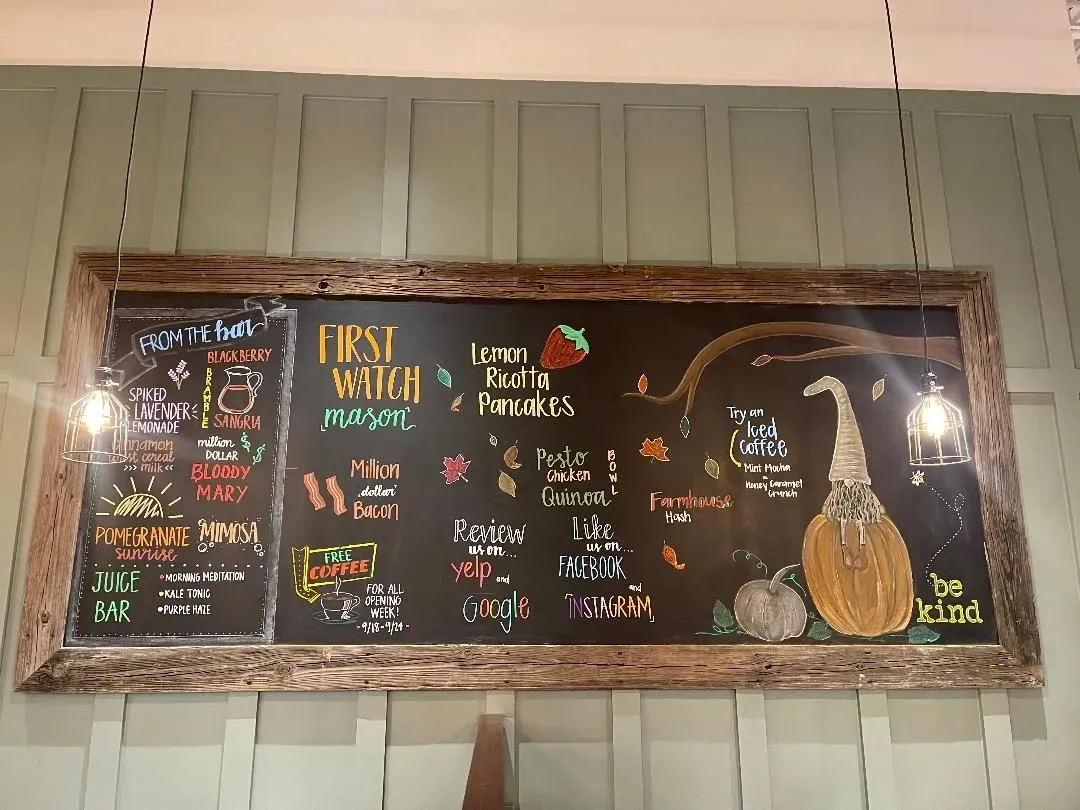 FROM THE bar
BLACKBERRY
BRAMBLE
SANGRIA
SPIKED
LAVENDER
LEMONADE
cinnamon
cereal
milk
million
DOLLAR
BLOODY
MARY
POMEGRANATE
sunrise
MIMOSA
JUICE
BAR
MORNING MEDITATION
KALE TONIC
PURPLE HAZE
FIRST
WATCH
mason
Million
dollar
Bacon
FREE
COFFEE
FOR ALL
OPENING
WEEK!
-9/18-9/24-
Lemon
Ricotta
Pancakes
Pesto
Chicken
Quinoa
BOWL
Review
us on...
yelp and
Google
Like
us on...
FACEBOOK
and
INSTAGRAM
Farmhouse
Hash
Try an
Iced
Coffee
Mint Mocha
Honey Caramel
Crunch
be
kind